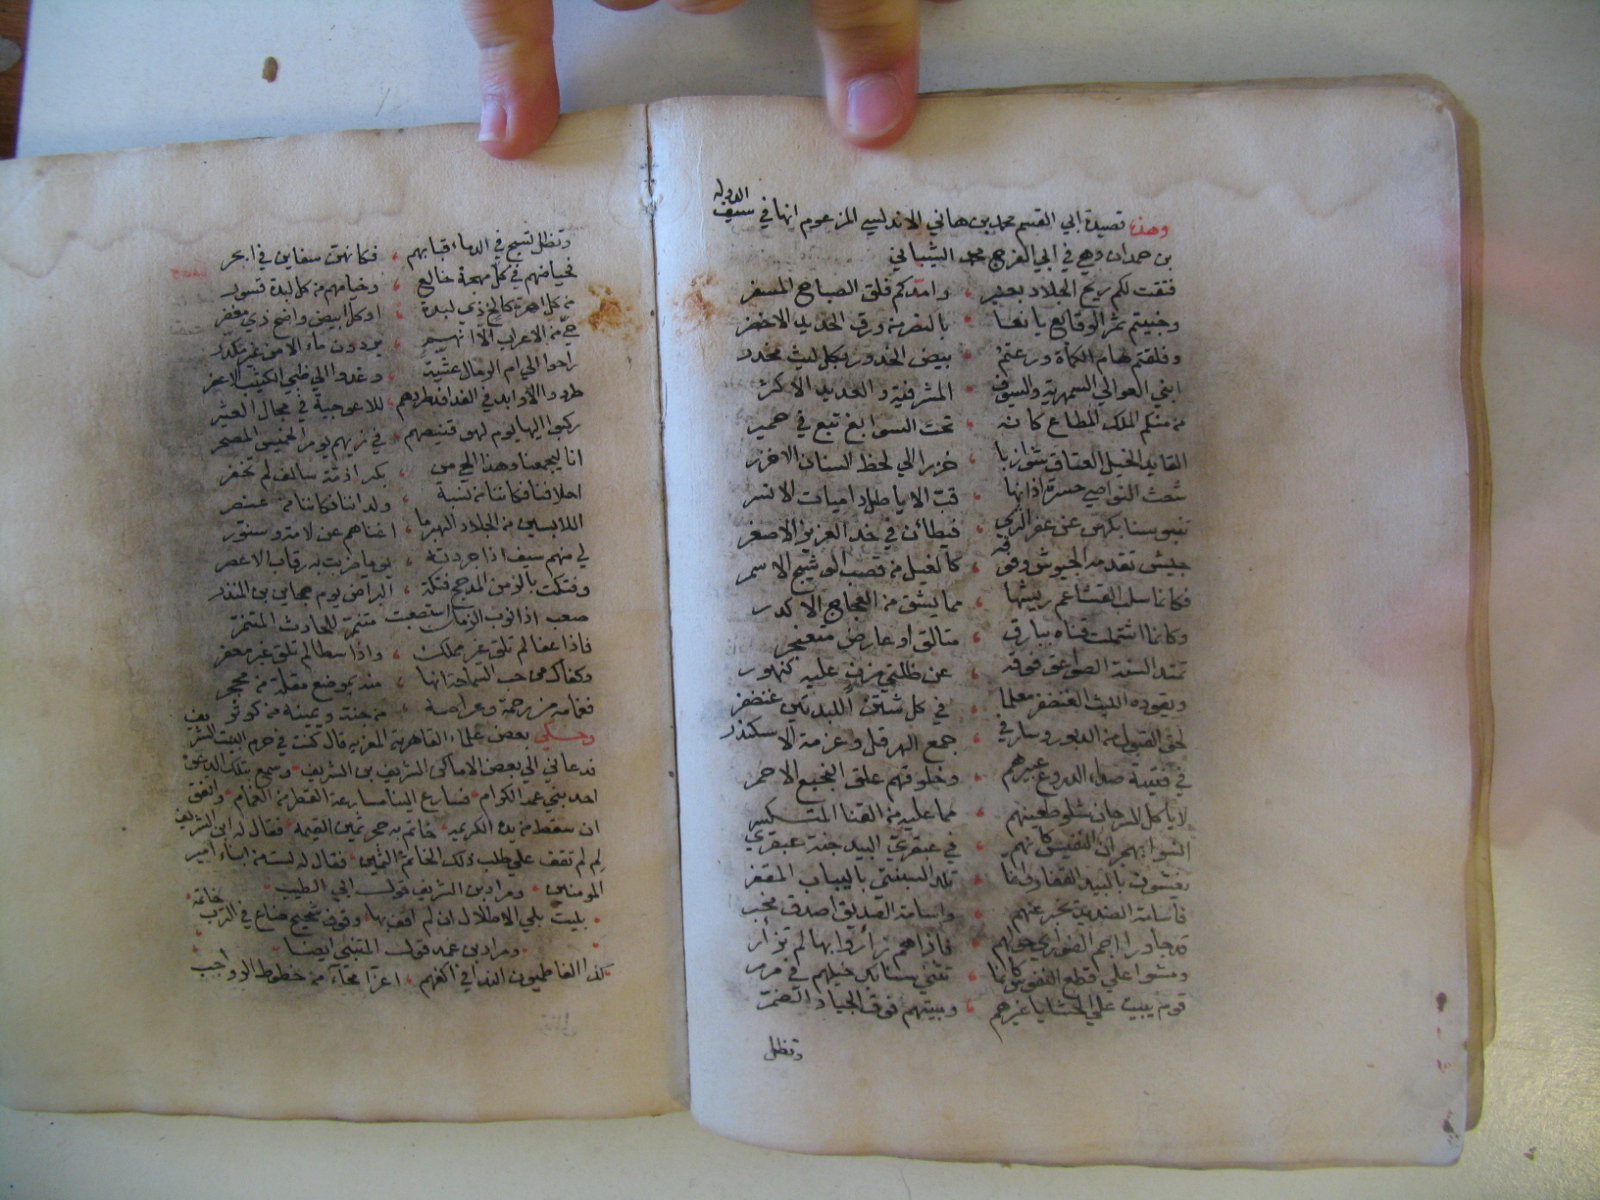 وهذه قصيدة ابي القسم محمد بن هاني الاندلسي المزعوم انها في سيف الدوله
بن حمدان وهي في ابي الفرج محمد الشيباني
فتقت لكم ريح الجلاد بعنبر وامدكم فلق الصباح المسفر
وجنيتم ثمر الوقايع يانعا بالنصر من ورق الحديد الاخضر
وفلقتم هام الكماة ورعتم بيض الخدور بكل ليث مخدر
ابني العوالي السمهرية والسيوف المشرفية والعديد الاكثر
من منكم الملك المطاع كانه تحت السوابغ تبع في حمير
القايد الخيل العتاق شوازبا خزرا الي لحظ السنان الاخزر
شعث النواصي حسرة اذانها قب الاياطل داميات الانسر
تنبو سنابكهن عن عفر الثري فيطأن في خد العزيز الاصغر
جيش تقدمه الليوث وفوقه كالغيل من قصب الوشيج الاسمر
وكانما سلب القشاعم ريشها مما يشق من العجاج الاكدر
وكانما اشتملت قناه ببارق متالق او عارض مثعنجر
تمتد السنة الصواعق فوقه عن ظلتي مزن عليه كنهور
ويقوده الليث الغضنفر معلما في كل شثن اللبدتين غضنفر
نحر القبول من الدبور وسار في جمع الهرقل وعزمة الاسكندر
في فتية صداء الدروع عبيرهم وخلوقهم علق النجيع الاحمر
لا ياكل السرحان شلو طعينهم مما عليه من القنا المتكسر
انسوا بهجران النفيس كانهم في عبقري البيد جنة عبقري
يغشون بالبيد القفار وانما تلد السبنتي باليباب المقفر
قد جاوروا اجم الضواري حولهم فاذا هم زأروا بها لم تزأر
ومشوا علي قطع النفوس كانما تمشي سنابك خيلهم في مرمر
قوم يبيت علي الحشايا غيرهم ومبيتهم فوق الجياد الضمر
وتظل
وتظل تسبح في الدماء قبابهم فكانهن سفاين في ابحر
فحياضهم من كل مهجة خالع وخيامهم من كل لبدة قسور
من كل اهرت كالح ذي لبدة او كل ابيض واضح ذي مغفر
حي من الاعراب الا انهم يردون ماء الامن غير مكدر
راحوا الي ام الريال عشية وغدوا الي ظبي الكثيب الاعفر
طردوا الاوابد في الفدافد طردهم للاعوجية في مجال العثير
ركبوا اليها يوم لهو قنيصهم في زيهم يوم الخميس المصحر
انا ليجمعنا وهذا الحي من بكر اذمة سالف لم تخفر
احلافنا فكاننا من نسبة ولداتنا فكاننا من عنصر
اللابسين من الجلاد الهبر ما اغناهم عن لامة وسنور
لي منهم سيف اذا جردته يوما ضربت به رقاب الاعصر
وفتكت بالزمن المدجج فتكة البراض يوم هجاين بن المنذر
صعب اذا نوب الزمان استصعبت متنمر للحادث المتنمر
فاذا عفا لم تلق غير مملك واذا سطا لم تلق غير معفر
وكفاك من حب السماحة انها منه بموضع مقلة من محجر
فغمامه من رحمة وعراصه من جنة ويمينه من كوثر
وحكي بعض علماء القاهرية المعزيه قال كنت في حرم البيت الشريف
فدعاني الي بعض الاماكن الشريف بن الشريف وسمع بتلك الدعوة
احد بني عمه الكرام فسارع الينا مسارعة القطر من الغمام واتفق
ان سقط من يده الكريمه خاتم به حجر ثمين القيمه فقال له ابن الشريف
لم لم تقف علي طلب ذلك الخاتم الثمين فقال له لست من ابناء امير
المومنين ومراد بن الشريف قول ابي الطيب
بليت بلي الاطلال ان لم اقف بها وقوف شحيح ضاع في الترب خاتمه
ومراد بن عمه قول المتنبي ايضا
كذا الفاطميون الندا في اكفهم اعز امحاء من خطوط الرواجب